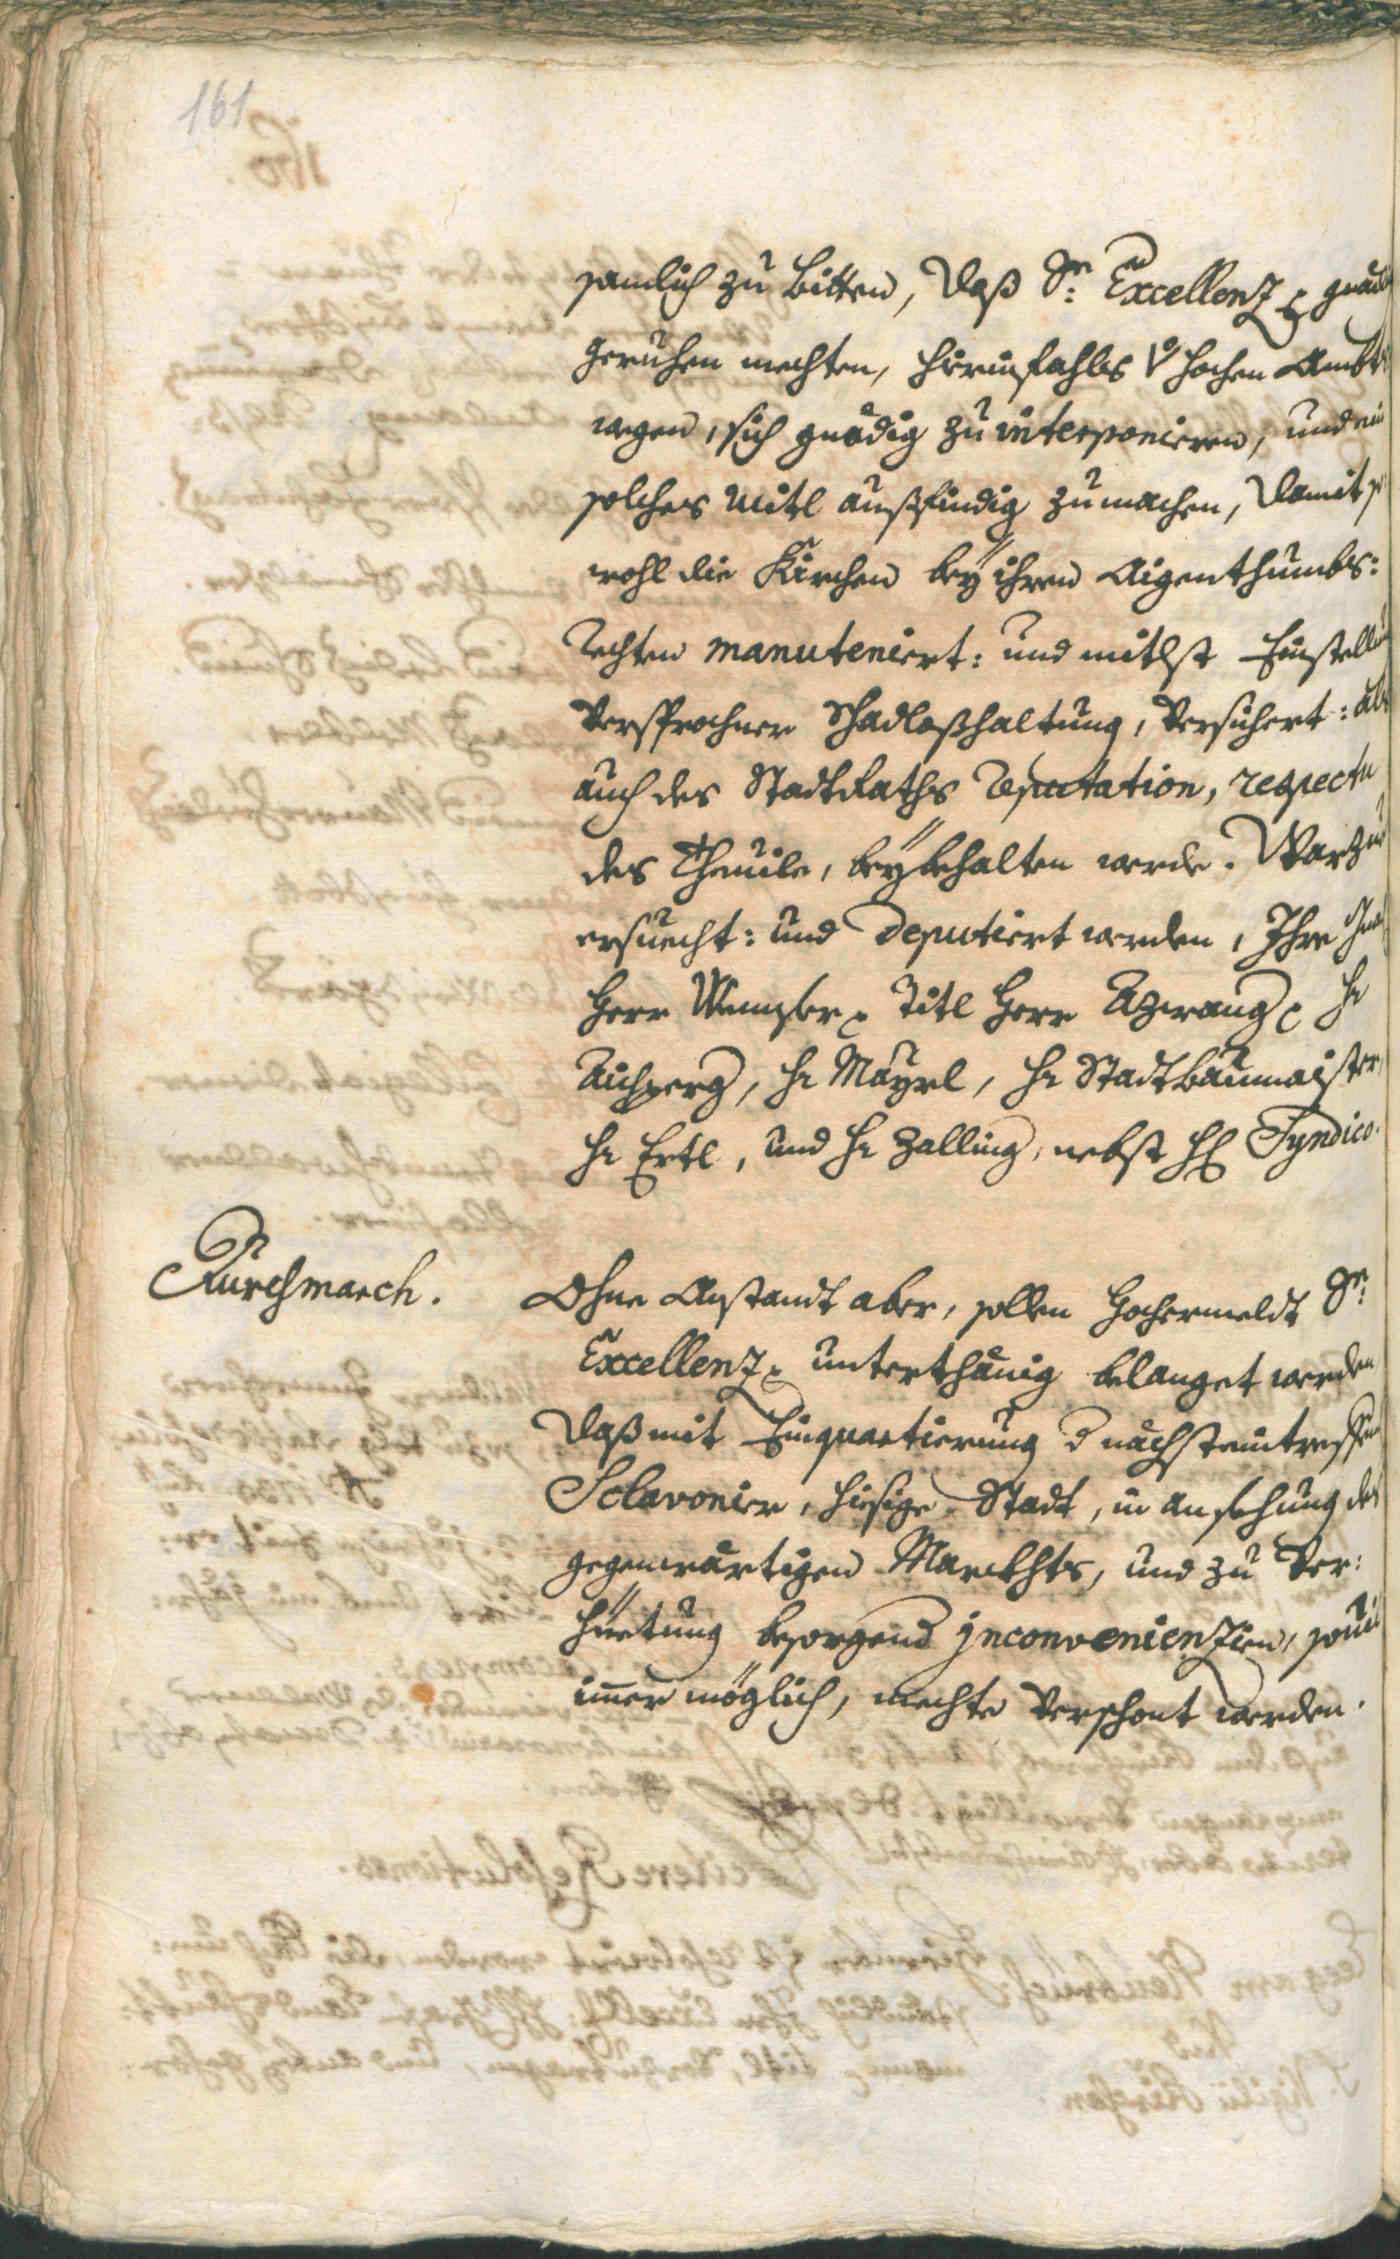 161
samlich zu bitten, daß Sr: Excellenz gnäd
geruhen mechten, hierinfahls hochen Ambts
wegen, sich gnedig zu interponieren, und ein
solches Mitl außfindig zumachen, damit so
wohl die Kirchen bey ihren Aigenthumbs:
Rechten manuteniert: und mitlst Einstellung
Versprochner Schadloßhaltung, Versichert: als
auch des StadtRaths Reputation, respectu
des Theuile, beybehalten werde. Warzue
ersuecht: und Deputiert werden, Ihre Gnad
Herr Menzler Titl Herr Azwang Hr
Aichperg, Hr Mäyrl, Hr Stadtbaumaister,
Hr Ertl, und Hr Zalling, nebst HE Syndico.
Durchmarch.
Ohne Anstandt aber, sollen Hochermeldt Sr:
Excellenz unterthänig belanget werden
daß mit Einquartierung d nächsteintreffend
Sclavonier, hiesige Stadt, in ansehung des
gegenwärtigen Marckhts, und zu Ver:
hüetung besorgend jnconvenienzien, souil
imer möglich, mechte verschont werden.